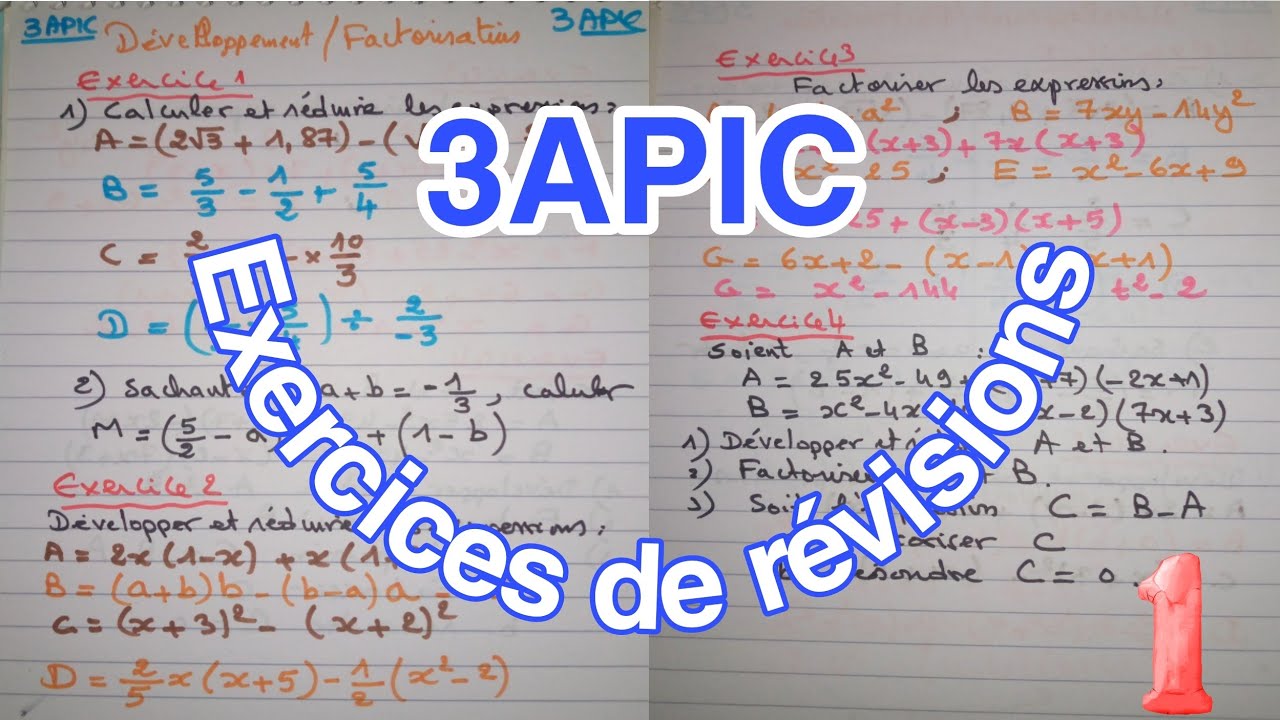 3APIC
Développement/Factorisations
3 APIC
Exercice 1
1) Calculer et réduire les expressions:
A = (2√3 + 1,87) - (√
B = 5/3 - 1/2 + 5/4
C = 2 × 10/3
D = ( ) ÷ 2/-3
2) Sachant a+b = -1/3, calculer
M = (5/2 - a) + (1 - b)
Exercice 2
Développer et réduire
A = 2x(1-x) + x(1
B = (a+b)b - (b-a)a
C = (x+3)² - (x+2)²
D = 2/5 x(x+5) - 1/2 (x² - 2)
Exercice 3
Factoriser les expressions:
a² ; B = 7xy - 14y²
(x+3) + 7x(x+3)
x² 25 ; E = x² - 6x + 9
25 + (x-3)(x+5)
G = 6x+2 - (x-1) x+1)
G = x² - 144 t² - 2
Exercice 4
Soient A et B :
A = 25x² - 49 + 7)(-2x+1)
B = x² - 4x x-2)(7x+3)
1) Développer et A et B.
2) Factoriser B.
3) Soit C = B - A
C
C = 0.
3APIC
Exercices de révisions
1